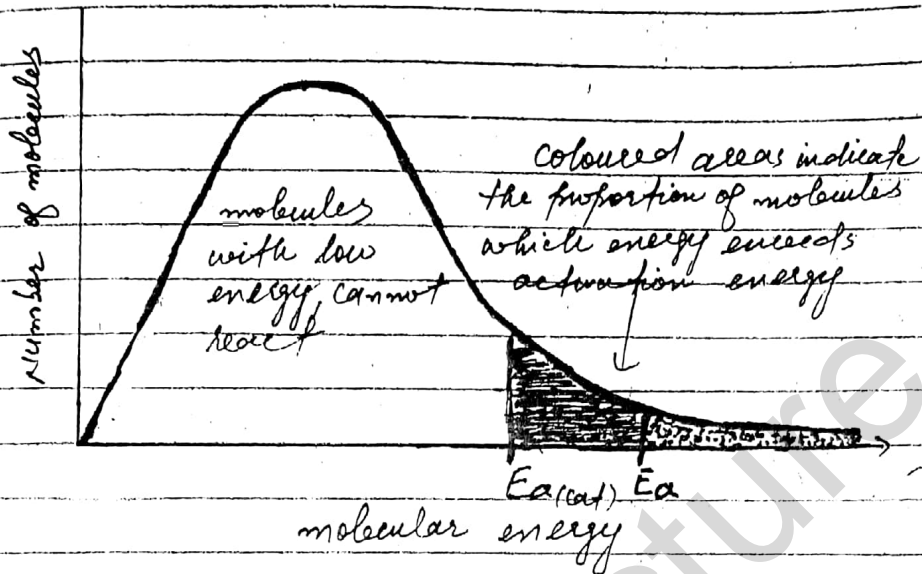 Number of molecules
molecules
with low
energy, cannot
react
coloured areas indicate
the proportion of molecules
which energy exceeds
activation energy
Ea(cat) Ea
molecular energy
ture